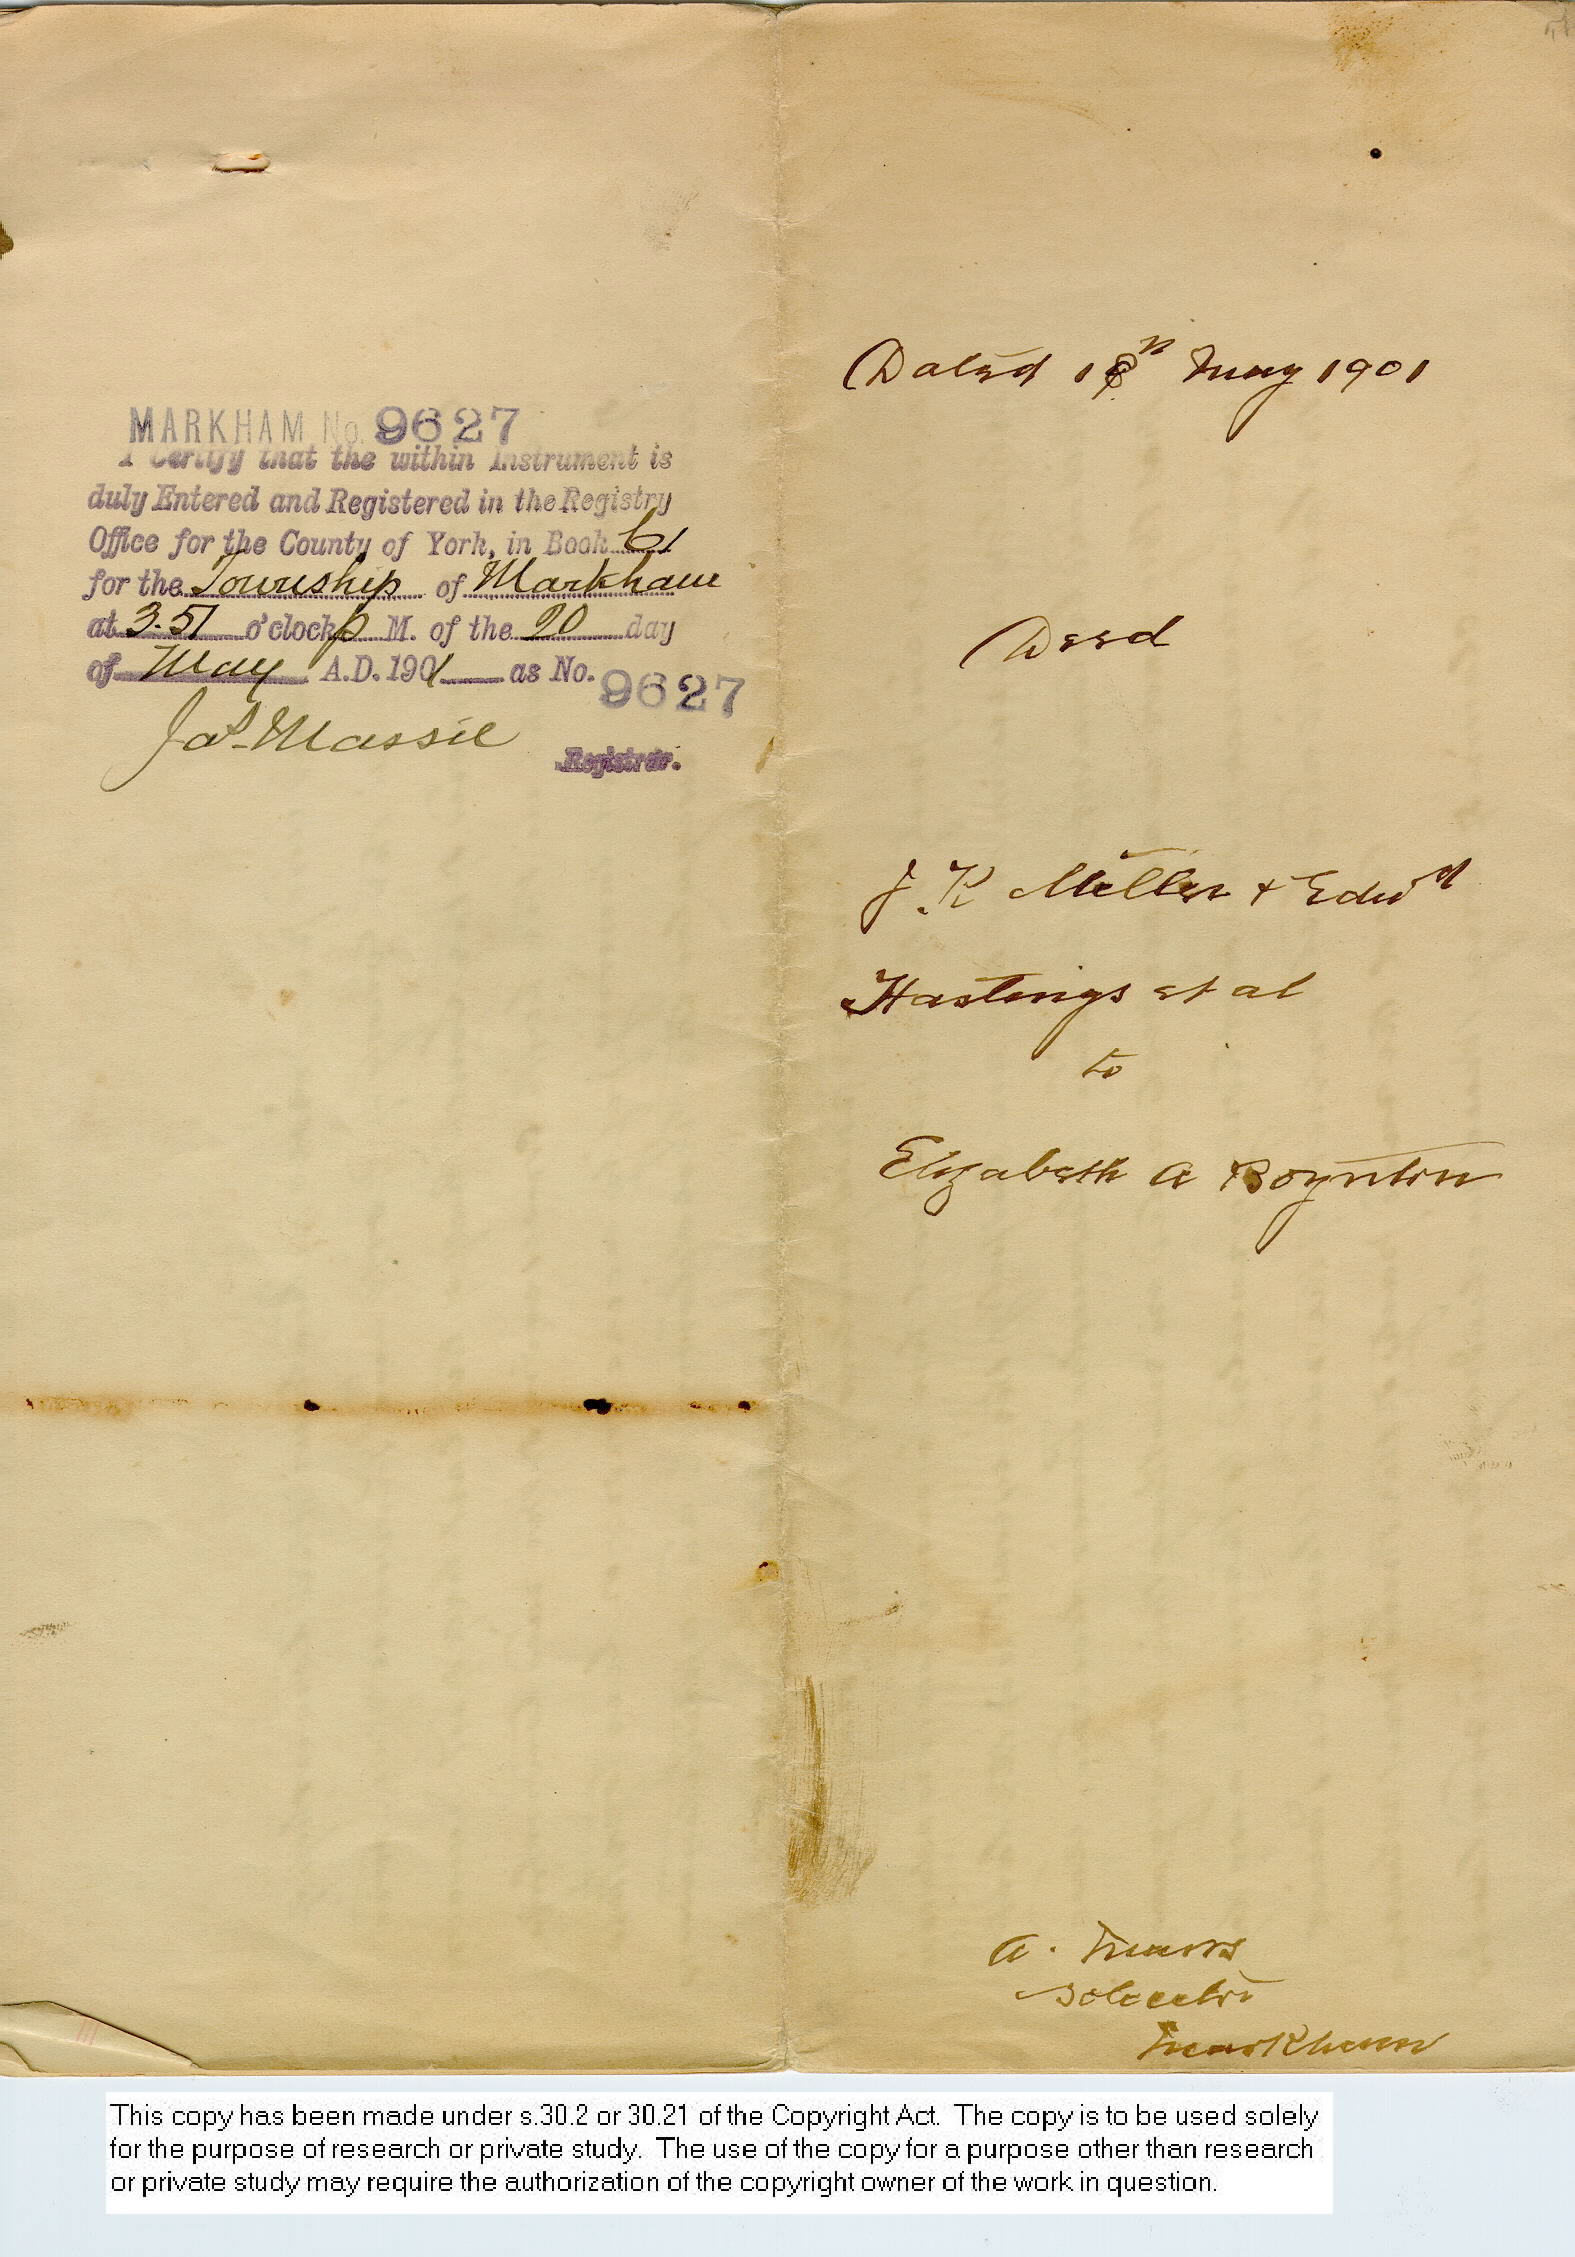 MARKHAM No. 9627
I Certify that the within Instrument is
duly Entered and Registered in the Registry
Office for the County of York, in Book 61
for the Township of Markham
at 3.51 o'clock p M. of the 20 day
of May A.D. 1901 as No. 9627
Jas Massie
Registrar.
Dated 18th May 1901
Deed
J. K Miller + Edwd
Hastings et al
to
Elizabeth A Boynton
A.
Solicitor
Markham
This copy has been made under s.30.2 or 30.21 of the Copyright Act. The copy is to be used solely
for the purpose of research or private study. The use of the copy for a purpose other than research
or private study may require the authorization of the copyright owner of the work in question.